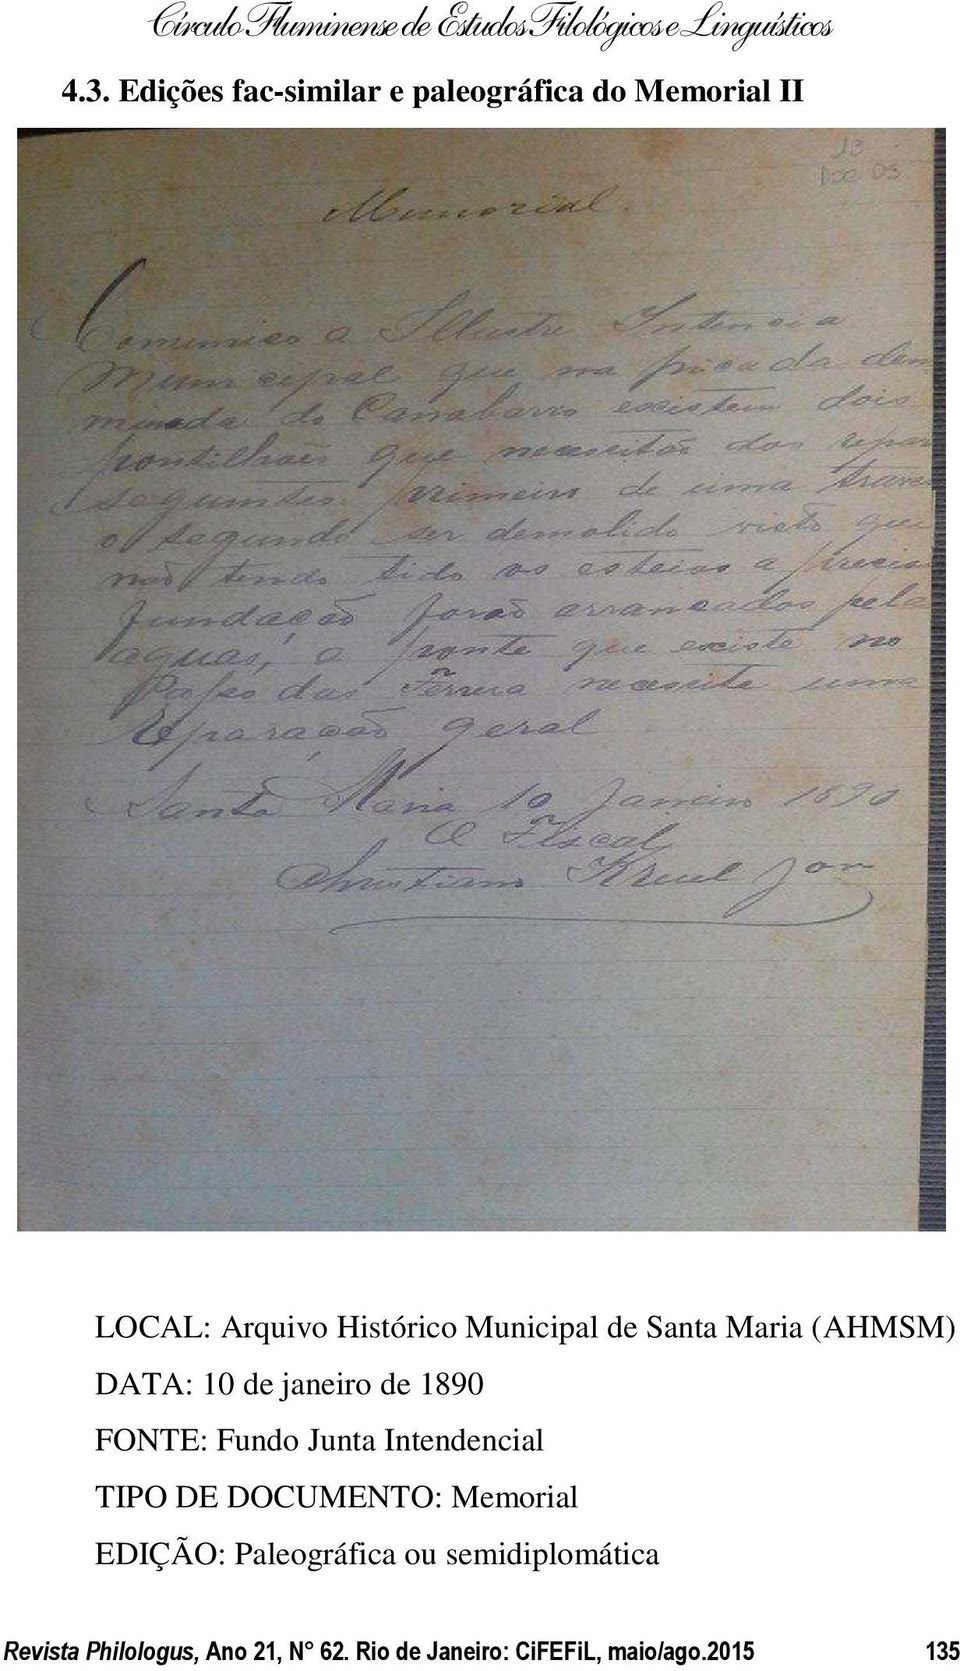 Círculo Fluminense de Estudos Filológicos e Linguísticos
4.3. Edições fac-similar e paleográfica do Memorial II
13
Doc 03
Memorial.
Comunico a Illustre Intencia
Municipal que na picada den
minada do Canabarro existem dois
pontilhões que necessitão dos repar
seguintes: primeiro de uma trave
o segundo ser demolido visto que
não tendo tido os esteios a precisa
fundação forão arrancados pelas
aguas, a ponte que existe no
Passo das Ferrera necessite uma
Reparação geral
Santa Maria 10 Janeiro 1890
O Fiscal
Christiano Kruel Jor
LOCAL: Arquivo Histórico Municipal de Santa Maria (AHMSM)
DATA: 10 de janeiro de 1890
FONTE: Fundo Junta Intendencial
TIPO DE DOCUMENTO: Memorial
EDIÇÃO: Paleográfica ou semidiplomática
Revista Philologus, Ano 21, N° 62. Rio de Janeiro: CiFEFiL, maio/ago.2015 135